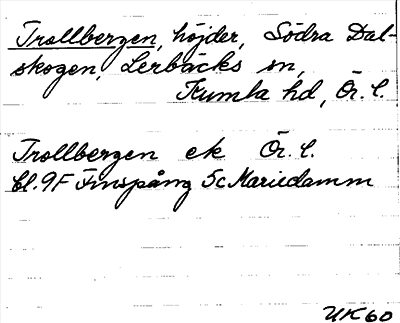 Trollbergen, höjder, Södra Dal-
skogen, Lerbäcks sn,
Kumla hd, Ör. l.
Trollbergen ek Ör. l.
bl. 9F Finspång 5c Mariedamm
UK60